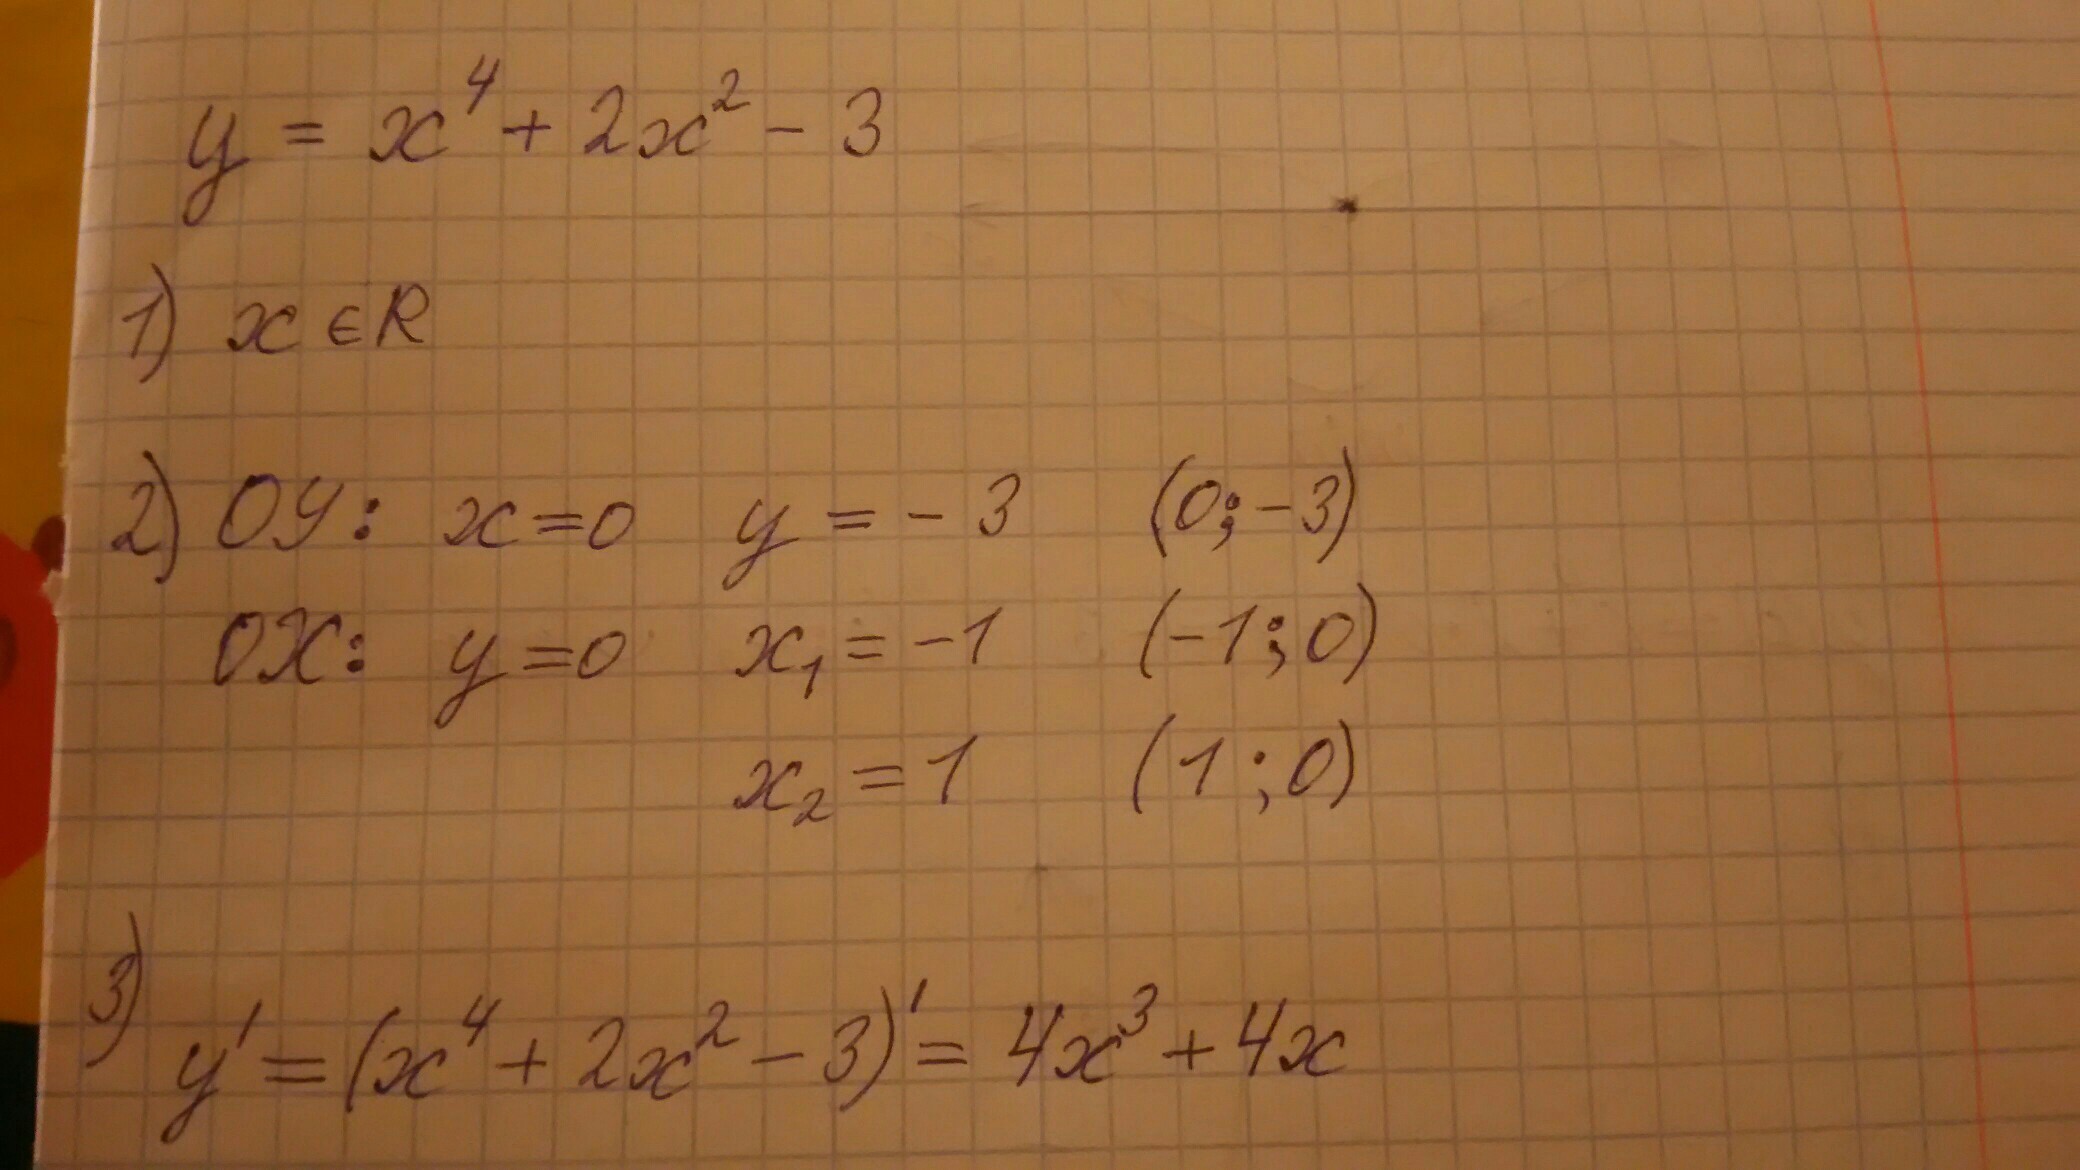 y = x⁴ + 2x² - 3
1) x ∈ R
2) OY: x=0 y = -3 (0; -3)
OX: y=0 x₁ = -1 (-1; 0)
x₂ = 1 (1; 0)
3) y' = (x⁴ + 2x² - 3)' = 4x³ + 4x